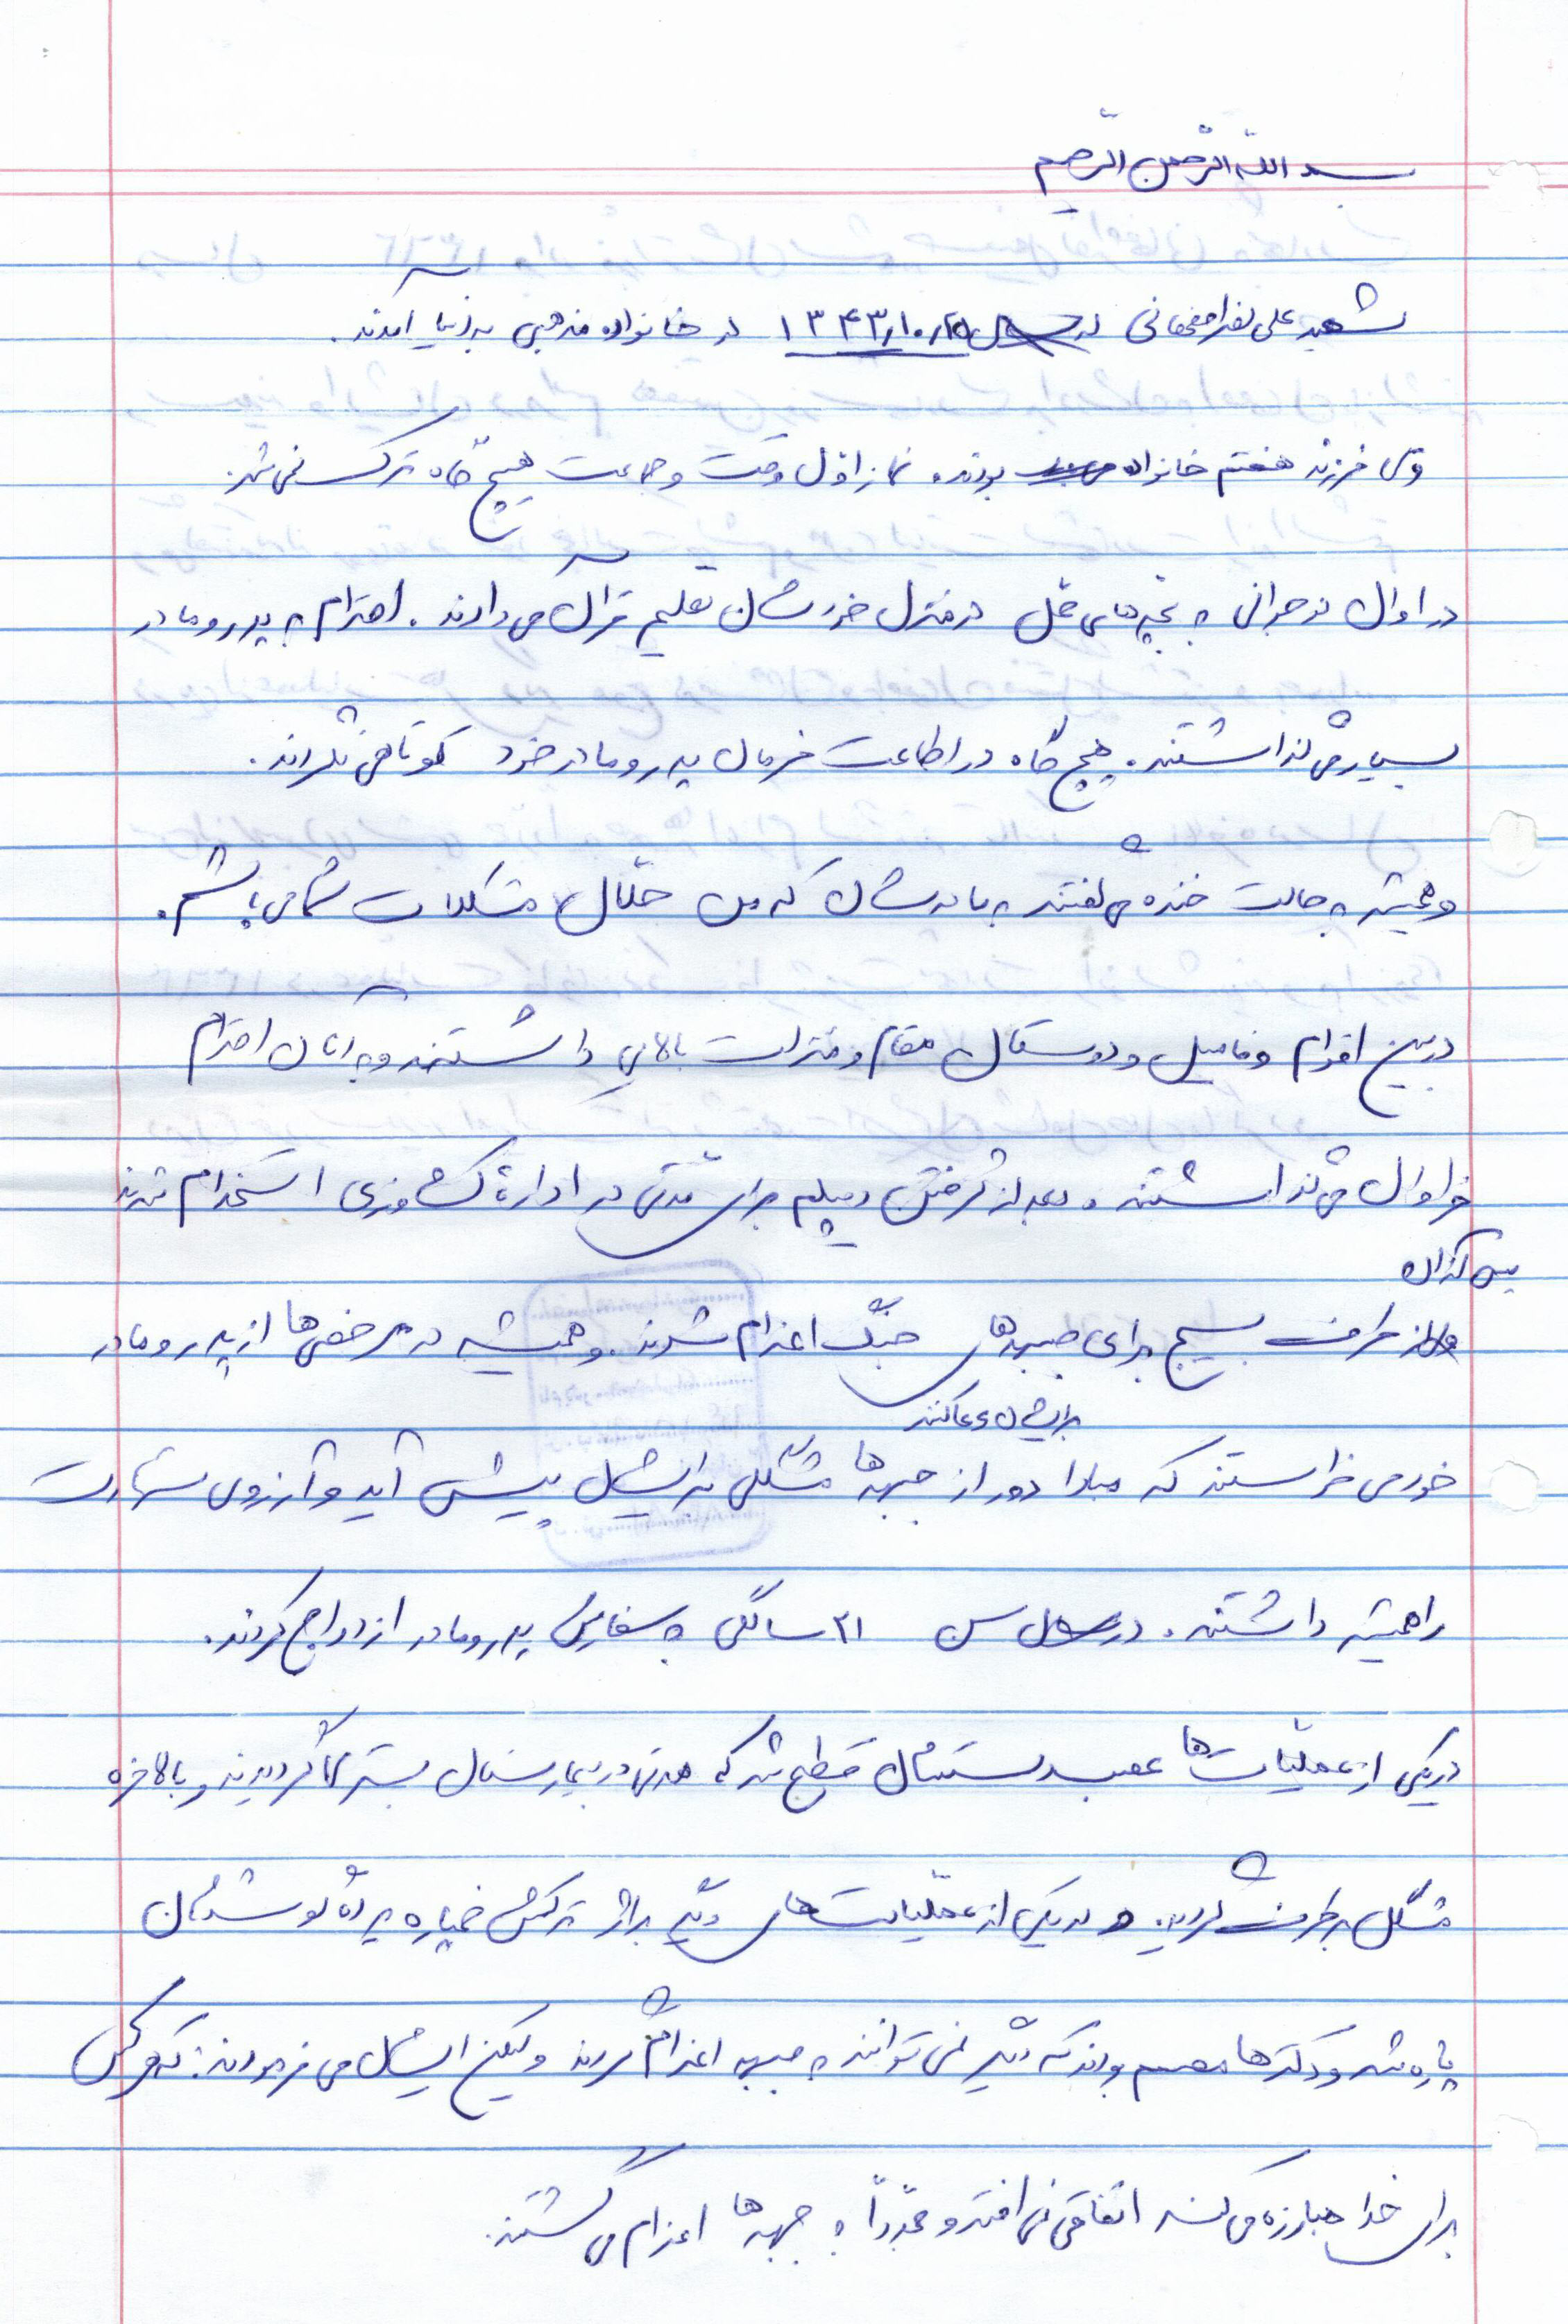 بسم الله الرحمن الرحیم
شهید علی در ۱۳۴۳ در خانواده مذهبی به دنیا آمدند.
وی فرزند هفتم خانواده بودند. نماز اول وقت و جماعت هیچ گاه ترک نمی شد.
در اوان نوجوانی به بچه های محل در منزل خودشان تعلیم قرآن می دادند. احترام به پدر و مادر
بسیار می گذاشتند. هیچ گاه در اطاعت فرمان پدر و مادر خود کوتاهی نکردند.
و همیشه به حالت خنده می گفتند به مادرشان که من حلال مشکلات شما می باشم.
در بین اقوام و فامیل و دوستان مقام و منزلت بالایی داشتند و به آنان احترام
فراوان می گذاشتند. بعد از گرفتن دیپلم برای مدتی در اداره کشاورزی استخدام شدند
پس از آن
از طرف بسیج برای جبهه های جنگ اعزام شدند. و همیشه در مرخصی ها از پدر و مادر
برایشان دعا کنند
خود می خواستند که مبادا دور از جبهه ها مشکلی برایشان پیش آید و آرزوی شهادت
را همیشه داشتند. در سن ۲۱ سالگی به سفارش پدر و مادر ازدواج کردند.
در یکی از عملیات ها عصب دستشان قطع شد که مدتی در بیمارستان بستری گردیدند و بالاخره
مشکل برطرف گردید. و در یکی از عملیات های دیگر بر اثر ترکش خمپاره پرده گوششان
پاره شد و دکترها مصمم بودند که دیگر نمی توانند به جبهه اعزام گردند ولیکن ایشان می فرمودند: که هر کس
برای خدا مبارزه می کند اتفاقی نمی افتد و مجدداً به جبهه ها اعزام می گشتند.